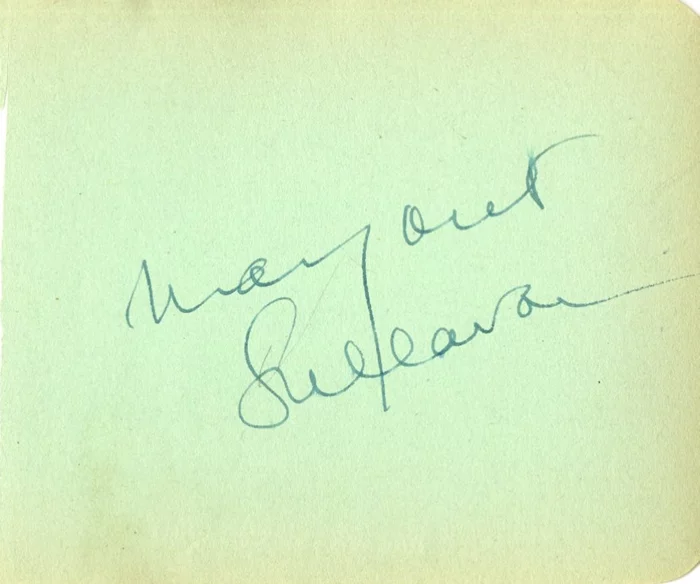 Margaret
Sullavan